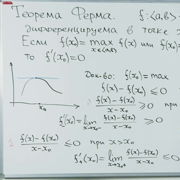 Теорема Ферма. f: <a,b>
дифференцируема в точке x
Если f(x₀) = max f(x) или f(x₀)
x∈<a,b>
то f'(x₀)=0
Док-во: f(x₀) = max
f(x) - f(x₀) ≤ 0
f(x)-f(x₀) / x-x₀ ≥ 0 при
x₀
f'(x₀) = lim f(x)-f(x₀) / x-x₀ ≥
f(x)-f(x₀) / x-x₀ ≤ 0 при x>x₀
f'₊(x₀) = lim f(x)-f(x₀) / x-x₀ ≤ 0